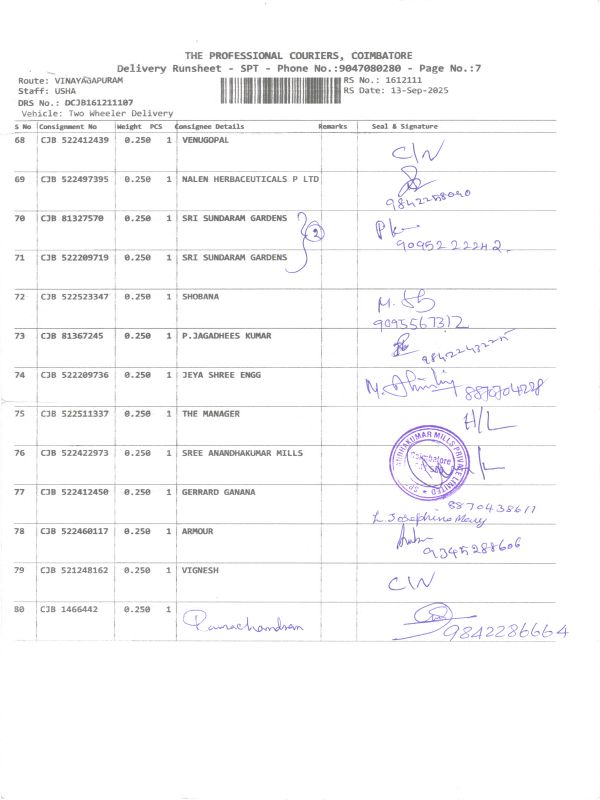 THE PROFESSIONAL COURIERS, COIMBATORE
Delivery Runsheet - SPT - Phone No.:9047080280 - Page No.:7
Route: VINAYAGAPURAM RS No.: 1612111
Staff: USHA RS Date: 13-Sep-2025
DRS No.: DCJB161211107
Vehicle: Two Wheeler Delivery
S No Consignment No Weight PCS Consignee Details Remarks Seal & Signature
68 CJB 522412439 0.250 1 VENUGOPAL C/N
69 CJB 522497395 0.250 1 NALEN HERBACEUTICALS P LTD
9842258090
70 CJB 81327570 0.250 1 SRI SUNDARAM GARDENS
2
90952 22242
71 CJB 522209719 0.250 1 SRI SUNDARAM GARDENS
72 CJB 522523347 0.250 1 SHOBANA
9095567312
73 CJB 81367245 0.250 1 P.JAGADHEES KUMAR
74 CJB 522209736 0.250 1 JEYA SHREE ENGG
75 CJB 522511337 0.250 1 THE MANAGER H/L
76 CJB 522422973 0.250 1 SREE ANANDHAKUMAR MILLS
Coimbatore
77 CJB 522412450 0.250 1 GERRARD GANANA 8870438611
L. Josephine Mary
78 CJB 522460117 0.250 1 ARMOUR
9345288606
79 CJB 521248162 0.250 1 VIGNESH C/N
80 CJB 1466442 0.250 1 Ramachandran 9842286664